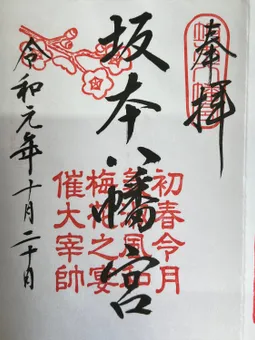 奉拝
坂本八幡宮
初春令月
氣淑風和
梅花之宴
催大宰帥
令和元年十月二十日